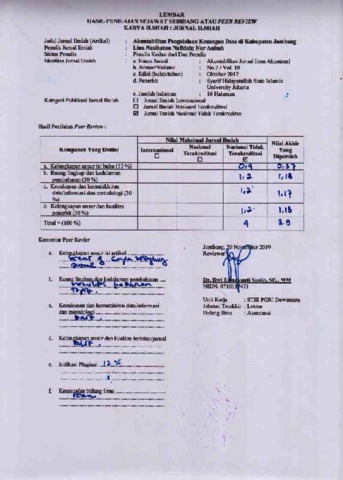 LEMBAR
HASIL PENILAIAN SEJAWAT SEBIDANG ATAU PEER REVIEW
KARYA ILMIAH : JURNAL ILMIAH
Judul Jurnal Ilmiah (Artikel) : Akuntabilitas Pengelolaan Keuangan Desa di Kabupaten Jombang
Penulis Jurnal Ilmiah : Lina Nasihatun Nafidah; Nur Anisah
Status Penulis : Penulis Kedua dari Dua Penulis
Identitas Jurnal Ilmiah : a. Nama Jurnal : Akuntabilitas Jurnal Ilmu Akuntansi
b. Nomor/Volume : No.2 / Vol. 10
c. Edisi (bulan/tahun) : Oktober 2017
d. Penerbit : Syarif Hidayatullah State Islamic
University Jakarta
e. Jumlah halaman : 16 Halaman
Kategori Publikasi Jurnal Ilmiah : Jurnal Ilmiah Internasional
Jurnal Ilmiah Nasional Terakreditasi
Jurnal Ilmiah Nasional Tidak Terakreditasi
Hasil Penilaian Peer Review :
Komponen Yang Dinilai
Nilai Maksimal Jurnal Ilmiah
Internasional
Nasional Terakreditasi
Nasional Tidak Terakreditasi
Nilai Akhir Yang Diperoleh
a. Kelengkapan unsur isi buku (10 %) 0,4 0,37
b. Ruang lingkup dan kedalaman pembahasan (30 %) 1,2 1,18
c. Kecukupan dan kemutakhiran data/informasi dan metodologi (30 %) 1,2 1,17
d. Kelengkapan unsur dan kualitas penerbit (30 %) 1,2 1,18
Total = (100 %) 4 3.9
Komentar Peer Review
Jombang, 20 November 2019
Reviewer
a. Kelengkapan unsur isi artikel
b. Ruang lingkup dan kedalaman pembahasan
c. Kecukupan dan kemutakhiran data/informasi
dan metodologi
Baik
d. Kelengkapan unsur dan kualitas terbitan/jurnal
Baik
e. Indikasi Plagiasi 12 %
f. Kesesuaian bidang ilmu
SE., MM
Unit Kerja : STIE PGRI Dewantara
Jabatan Terakhir : Lektor
Bidang Ilmu : Akuntansi